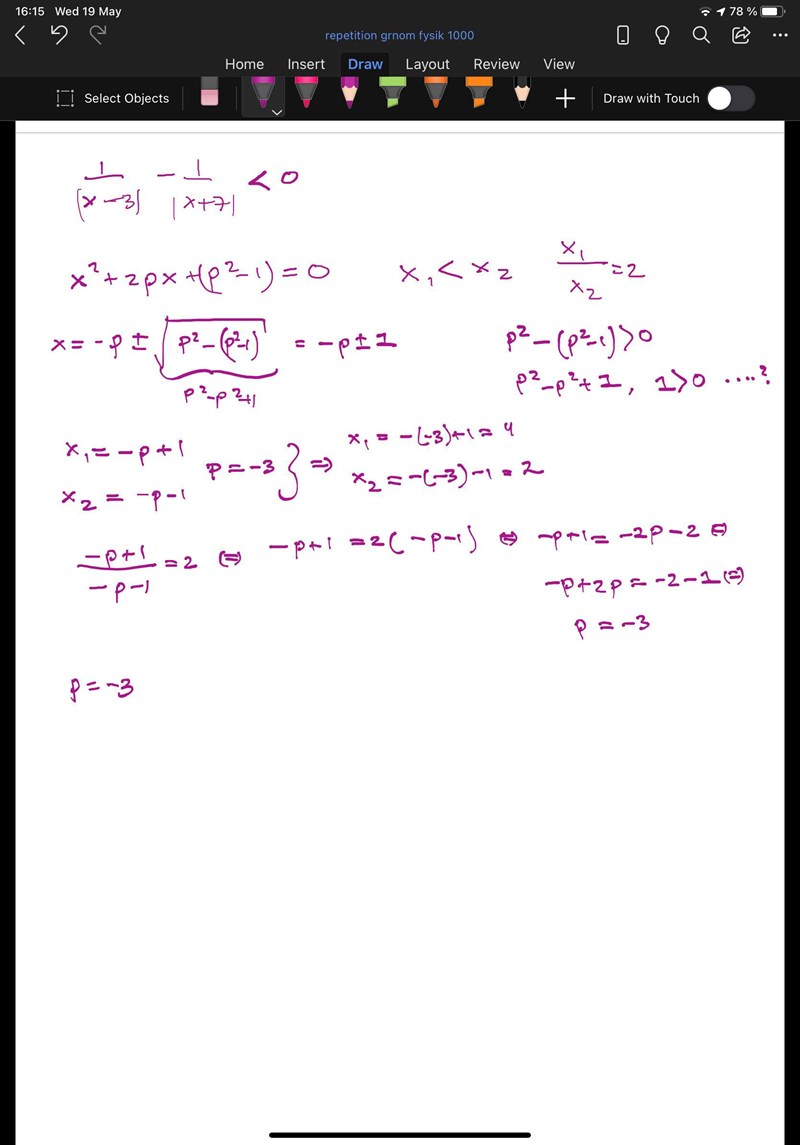 16:15 Wed 19 May 78 %
repetition grnom fysik 1000
Home Insert Draw Layout Review View
Select Objects Draw with Touch
1/|x-3| - 1/|x+7| < 0
x² + 2px + (p²-1) = 0 x₁ < x₂ x₁/x₂ = 2
x = -p ± √(p²-(p²-1)) = -p ± 1 p² - (p²-1) > 0
p²-p²+1 p²-p²+1, 1>0 ....?
x₁ = -p+1 p = -3 } ⇒ x₁ = -(-3)+1 = 4
x₂ = -p-1 x₂ = -(-3)-1 = 2
(-p+1)/(-p-1) = 2 ⇔ -p+1 = 2(-p-1) ⇔ -p+1 = -2p-2 ⇔
-p+2p = -2-1 ⇔
p = -3
p = -3